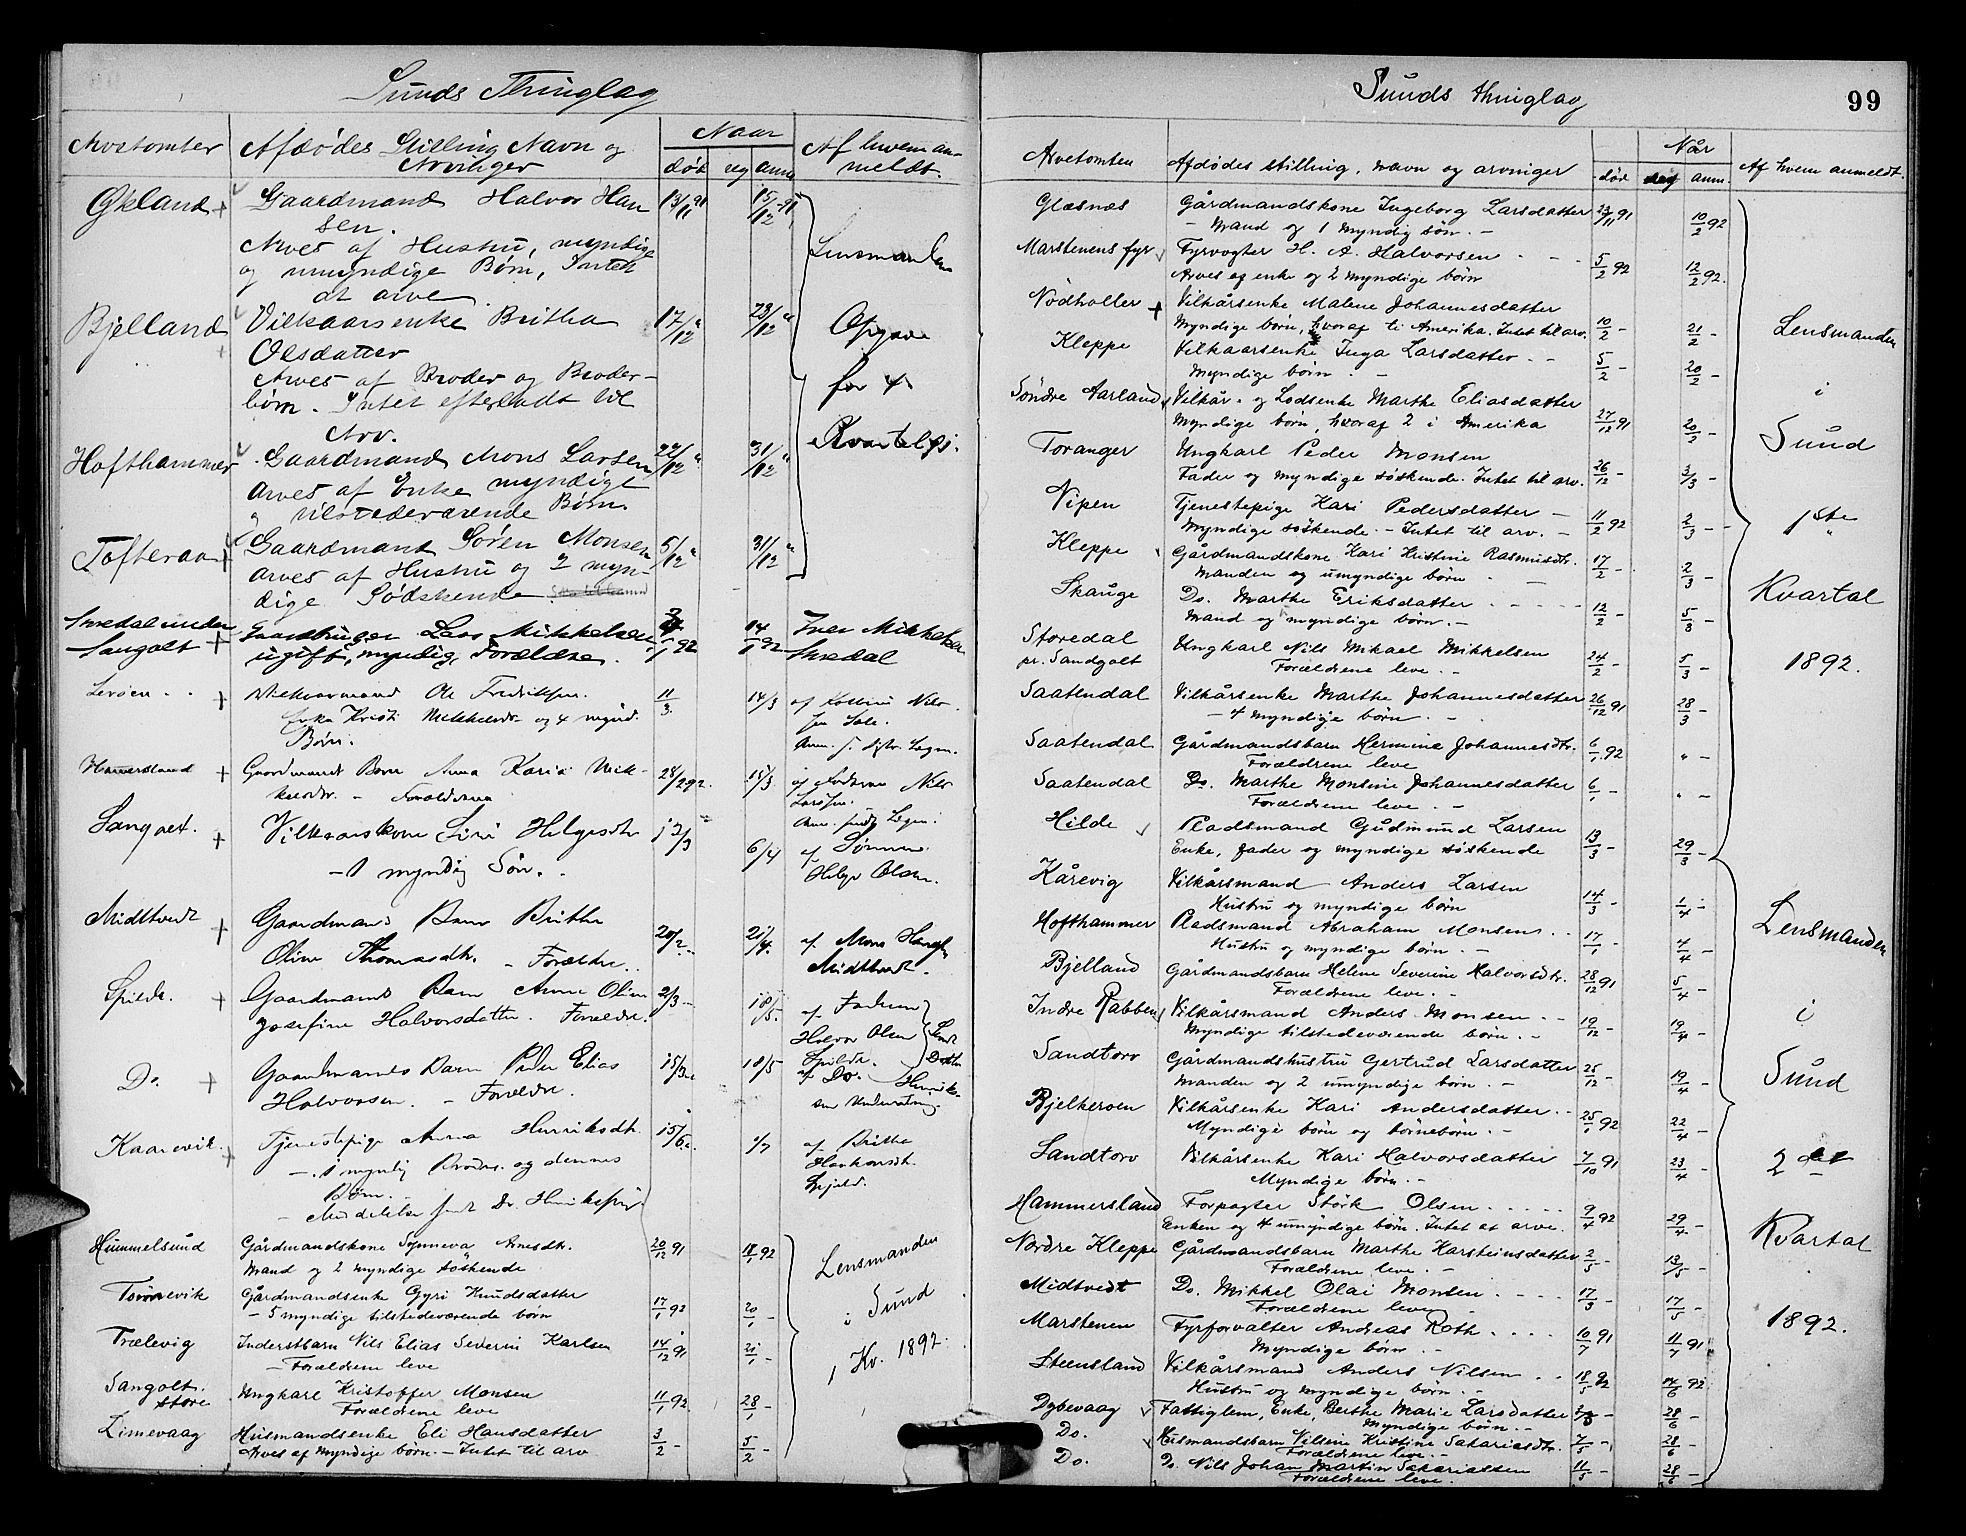 Sunds Thinglag
Arvetomter
Afdødes Stilling Navn og
Arvinger
Naar
død reg anm
Af hvem an-
meldt.
Økland + Gaardmand Halvor Han 13/11 91 15/12-91
sen.
Arves af Hustru, myndige Lensmanden
og umyndige Børn, Intet
at arve.
Bjelland Vilkaarsenke Britha 17/12 " 23/12 " Opgave
Olsdatter
Arves af Broder og Broder- for 4
børn. Intet efterladt til
Arv. Kvartelgj.
Hofthammer Gaardmand Mons Larsen 22/12 " 31/12 "
Arves af Enke myndige
og tilstedeværende Børn.
Tofteraa + Gaardmand Søren Monsen 5/12 " 31/12 "
Arves af Hustru og 2 myn-
dige Sødskende
under Gaardbruger Lars Mikkelsen, 92 14/1 92 Iver Mikkelsen
Sangolt + ugift, myndig, Forældre.
Lerøen - - + Ole Fredriksen. 11/3. 14/3
Enke Kristi og 4 mynd.
Børn.
Hammersland + Gaardmands Barn Anna Karia Mik- 28/2 92. 15/3
kelsdtr. - Forældrene
Sangolt. + Vilkaarskone Siri Helgesdtr 12/3 6/4 af Sønnen
- 1 myndig Søn. - Helge Olsen.
Midtvedt + Gaardmands Barn Britha 20/2 - 21/4. af Mons
Oline Thomasdtr. - Forældre. Midtvedt.
Spilde. + Gaardmands Barn Anne Oline 2/3 - 18/5. af Faderen
Josefine Halvorsdatter. Forældre. Halvor Olsen
Spilde.
Do. + Gaardmands Barn Peder Elias 15/3 - 18/5 af Do.
Halvorsen. - Forældre.
Kaarevik. + Tjenestepige Anna Henriksdtr. 15/6 af Britha
- 1 myndig Broder og dennes
Børn.
Hummelsund Gårdmandskone Synneva Arnesdtr. 20/12 91 18/1 92
Mand og 2 myndige søskende
Tørrevik Gårdmandsenke Gyri Knudsdatter 17/1 92 20/1 - Lensmanden
- 5 myndige tilstedeværende børn
Trælevig Inderstbarn Nils Elias Severin Karlsen 14/12 91 21/1 - i Sund
- Forældrene leve
Sangolt. Ungkarl Kristoffer Monsen 11/1 92. 28/1 - 1 Kv. 1892.
store Forældrene leve
Limevaag Husmandsenke Eli Hansdatter 3/2 - 5/2 -
Arves af myndige børn. - Intet til arv
Sunds thinglag
99
Arvetomten Afdødes stilling, navn og arvinger Når
død anm. Af hvem anmeldt.
Glæsnæs Gårdmandskone Ingeborg Larsdatter 23/11 91 10/2 92
- Mand og 1 myndig søn. -
Marstenens fyr Fyrvogter H. A. Halvorsen 5/2 92 12/2 92.
Arves af enke og 2 myndige børn
Nødholler + Vilkårsenke Malene Johannesdatter
Myndige børn, hvoraf ti Amerika. Intet til arv. 10/2 - 21/2 - Lensmanden
Kleppe Vilkaarsenke Inga Larsdatter 5/2 - 20/2 -
Myndige børn. - i
Søndre Aarland Vilkår- og Lodsenke Marthe Eliasdatter
Myndige børn, hvoraf 2 i Amerika 27/12 91 -
Toranger Ungkarl Peder Monsen Sund
Fader og myndige søskende. Intet til arv. 26/12 - 3/3 -
Vipen Tjenestepige Kari Pedersdatter -
Myndige søskende. - Intet til arv. - 11/2 92 2/3 - 1ste
Kleppe Gårdmandskone Kari Kristine Rasmusdtr. 17/2 - 2/3 -
Manden og umyndige børn -
Skauge Do. Marthe Eriksdatter 12/2 - 5/3 - Kvartal
Mand og myndige børn. -
Storedal Ungkarl Nils Mikael Mikkelsen 24/2 - 5/3 - 1892.
pr. Sandgolt Forældrene leve. -
Saatendal Vilkårsenke Marthe Johannesdatter 26/12 91 28/3 -
- 4 myndige børn. -
Saatendal Gårdmandsbarn Hermine Johannesdtr. 6/1 92 " -
Forældrene leve
Saatendal Do. Marthe Monsine Johannesdatter 6/1 - " -
Forældrene leve. -
Hilde Pladsmand Gudmund Larsen
Enke, fader og myndige søskende 13/3 - 29/3 -
Kårevig Vilkårsmand Anders Larsen 14/3 - 1/4 -
Hustru og myndige børn
Hofthammer Pladsmand Abraham Monsen 17/1 - 4/4 - Lensmanden
Hustru og myndige børn. -
Bjelland Gårdmandsbarn Helene Severine Halvorsdtr. 28/12 91 5/4 -
Forældrene leve. -
Indre Rabben Vilkårsmand Anders Monsen 19/12 - 19/4 - i
Myndige tilstedeværende børn. -
Sandtorv Gårdmandshustru Gertrud Larsdatter 25/12 - 19/4 - Sund
Manden og 2 umyndige børn. -
Bjelkerøen Vilkårsenke Kari Andersdatter 25/1 92 22/4 -
Myndige børn og børnebørn. -
Sandtorv Vilkårsenke Kari Halvorsdatter 7/10 91 23/4 - 2det
Myndige børn. -
Hammersland Forpagter Størk Olsen 9/4 92 29/4 -
Enken og 4 umyndige børn. Intet at arve. Kvartal
Nordre Kleppe Gårdmandsbarn Marthe Karsteinsdatter 2/5 - 13/5 -
Forældrene leve. -
Midtvedt Do. Mikkel Olai Monsen 17/3 - 17/5 -
Forældrene leve
Marstenen Fyrforvalter Andreas Roth 10/7 91 11/7 91 1892.
Myndige børn. -
Steensland Vilkårsmand Anders Nilsen 18/5 92 14/6 92
Hustru og myndige børn. -
Dybevaag Fattiglem, Enke, Berthe Marie Larsdatter 28/6 -
Myndige børn. -
Do. Husmandsbarn Nilsine Kristine Sakariasdtr. 7/5 - 28/6 -
Forældrene leve. -
Do. Do. Nils Johan Martin Sakariassen 11/5 - 28/6 -
Forældrene leve.